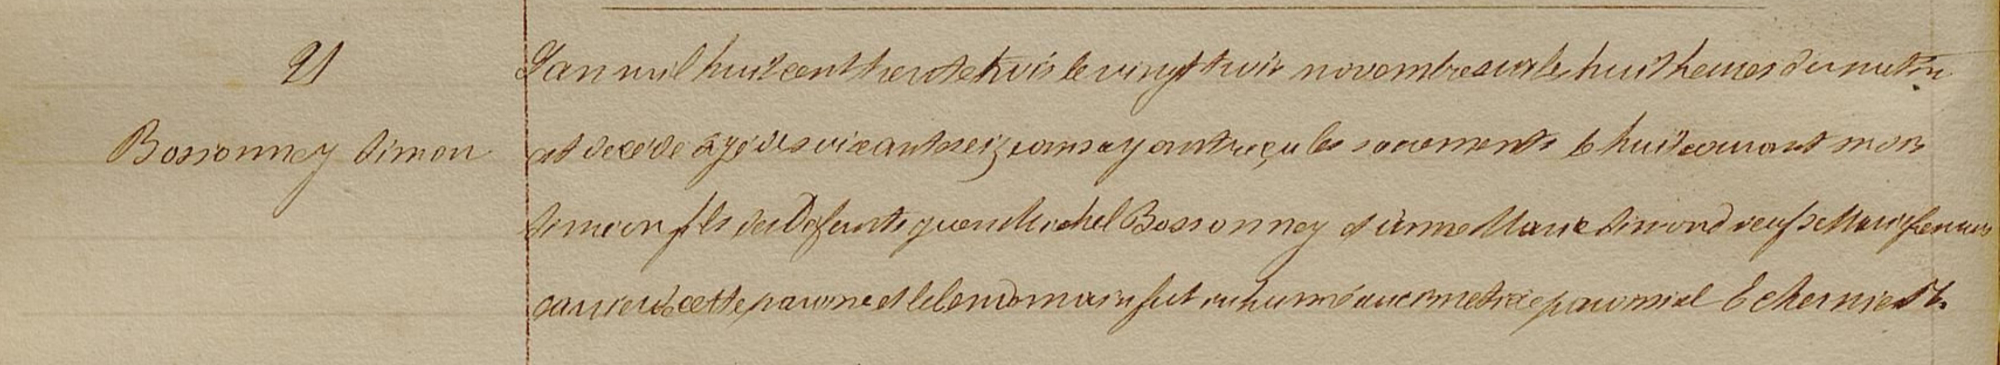 21
Bossonney Simon
L'an mil huit cent trente trois le vingt trois novembre sur les huit heures du matin
est décédé agé de soixante seize ans ayant reçu les sacrements le huit courant mois
Simon fils des Defunts Michel Bossonney et Anne Marie Simond veuf de
cette paroisse et le lendemain fut inhumé au cimetiere paroissial